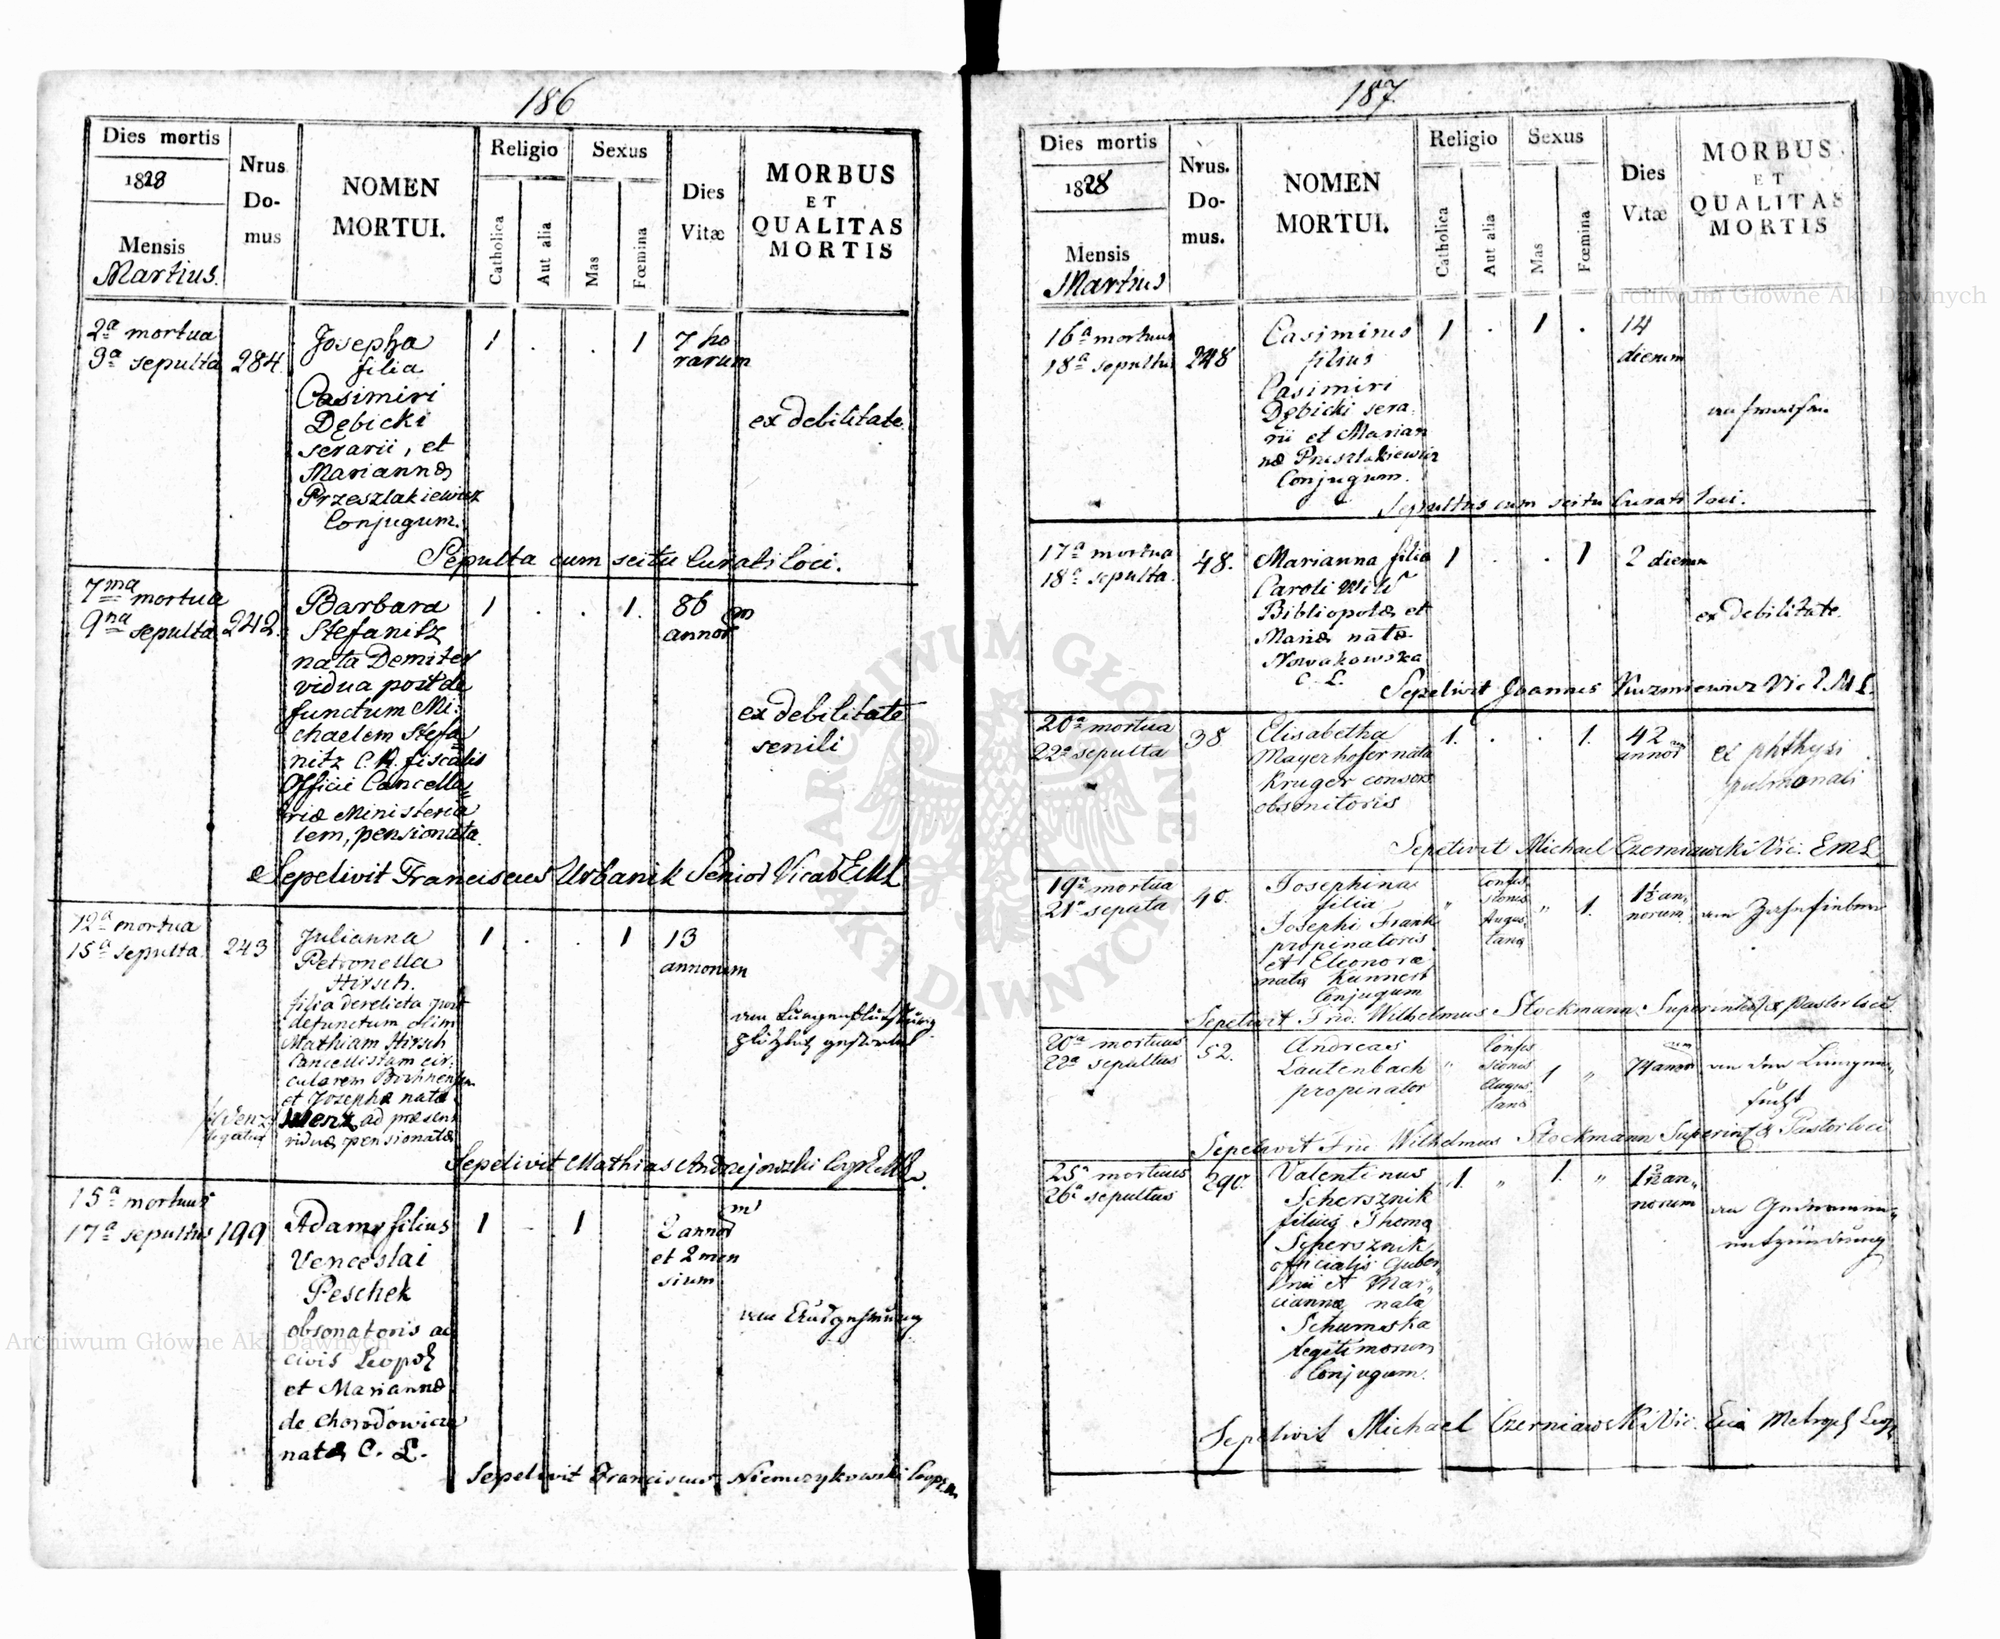 186
Dies mortis
1828
Mensis
Martius.
Nrus
Do-
mus
NOMEN
MORTUI.
Religio
Catholica
Aut alia
Sexus
Mas
Fœmina
Dies
Vitæ
MORBUS
ET
QUALITAS
MORTIS
2a mortua
3a sepulta
284.
Josepha
filia
Casimiri
Dębicki
serarii, et
Mariannæ
Przeszlakiewicz
Conjugum.
1 . . 1
7 ho
rarum
ex debilitate.
Sepulta cum scitu Curati loci.
7ma mortua
9na sepulta
242.
Barbara
Stefanitz
nata Demiter
vidua post de
functum Mi-
chaelem Stefa
nitz C. R. fiscalis
Officii Cancella
riæ Ministeria
lem, pensionata.
1 . . 1.
86
annorum
ex debilitate
senili
Sepelivit Franciscus Urbanik Senior Vicar
12a mortua
15a sepulta.
243
Julianna
Petronella
Hirsch.
filia derelicta post
defunctum olim
Mathiam Hirsch
Cancellistam cir-
cularem
et Josepha nata
Wenz ad præsens
viduæ pensionatæ
Wenz
legatur
1 . . 1
13
annorum
Sepelivit Mathias Andrejowski
15a mortuus
17a sepultus
199
Adam filius
Venceslai
Peschek
obsonatoris ac
civis Leopol
et Mariannæ
de Chorodowicze
natæ C. L.
1 - 1
2 annorum
et 2 men
sium
Sepelivit Franciscus Niemczykowski
187.
Dies mortis
1828
Mensis
Martius
Nrus.
Do-
mus.
NOMEN
MORTUI.
Religio
Catholica
Aut alia
Sexus
Mas
Fœmina
Dies
Vitæ
MORBUS
ET
QUALITAS
MORTIS
16a mortuus
18a sepultus
248
Casimirus
filius
Casimiri
Dębicki sera-
rii et Marian
næ Przeszlakiewicz
Conjugum.
1 . 1 .
14
dierum
Sepultus cum scitu Curati loci.
17a mortua
18a sepulta.
48.
Marianna filia
Caroli Wild
Bibliopolæ et
Mariæ natæ
Nowakowska
C. L.
1 . . 1
2 dierum
ex debilitate.
Sepelivit Joannes Kuzmiewicz Vic
20a mortua
22a sepulta
38
Elisabetha
Mayerhofer nata
Kruger consors
obsonitoris
1. . . 1.
42
annorum
ex phthysi
pulmonali
Sepelivit Michael Czerniawski Vic. EML
19a mortua
21a sepulta
40.
Josephina
filia
Josephi Frank
propinatoris
et Eleonoræ
natæ Kunnert
Conjugum
" Confes
sionis
Augus
tanæ
" 1.
1½ an-
norum
Sepelivit Frid. Wilhelmus Stockmann Superintend. & Pastor loci.
20a mortuus
22a sepultus
52.
Andreas
Lautenbach
propinator
" Confes
sionis
Augus
tanæ
1 "
74 annorum
Sepelivit Frid Wilhelmus Stockmann Superint & Pastor loci
25a mortuus
26a sepultus
290.
Valentinus
Schersznik
filius Thoma
Schersznik
officialis Guber-
nii et Mar-
ciannæ nata
Schumska
legitimorum
Conjugum.
1. " 1. "
an-
norum
Sepelivit Michael Czerniawski Vic.
ARCHIWUM GŁÓWNE AKT DAWNYCH
Archiwum Główne Akt Dawnych
Archiwum Główne Akt Dawnych